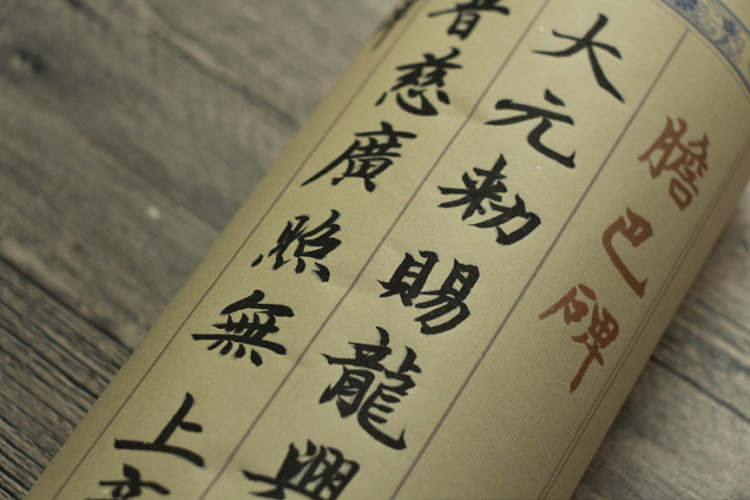 膽巴碑
大元勅賜龍興
普慈廣照無上